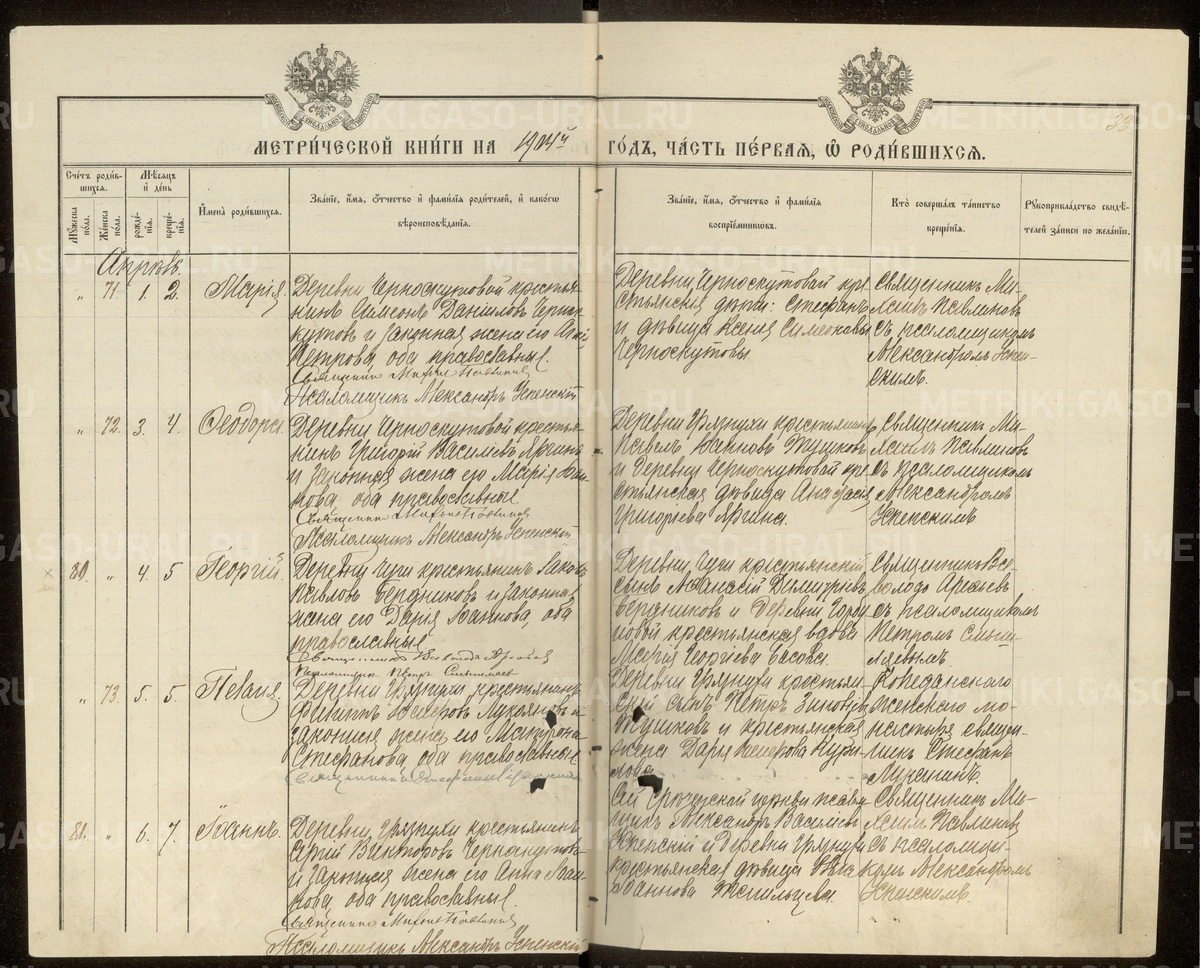 38
МЕТРИ́ЧЕСКОЙ КНИ́ГИ НА 1904й ГО́ДЪ, ЧА́СТЬ ПЕ́РВАЯ, Ѡ РОДИ́ВШИХСЯ.
Сче́тъ роди́вшихся.
Му́жеска по́ла.
Же́нска по́ла.
Мѣ́сяцъ и де́нь
рожде́нія.
креще́нія.
Имена̀ роди́вшихся.
Зва́ніе, и́мя, о́тчество и фами́лія роди́телей, и како́гѡ
вѣроисповѣ́данія.
Зва́ніе, и́мя, о́тчество и фами́лія
воспріе́мниковъ.
Кто̀ соверша́лъ та́инство
креще́нія.
Рукоприкла́дство свидѣ́-
телей за́писи по жела́нію.
Апрѣль.
„ 71. 1. 2. Марія
Деревни Черноскутовой крестья-
нинъ Симеонъ Даниловъ Черно-
скутовъ и законная жена его
Петрова, оба православные.
Священникъ Михаилъ Павлиновъ
Псаломщикъ Александръ Успенскій
Деревни Черноскутовой кре-
стьянскія дѣти: Стефанъ
и дѣвица Ксенія Симеоновы
Черноскутовы
Священникъ Ми-
хаилъ Павлиновъ
съ псаломщикомъ
Александромъ Успен-
скимъ.
„ 72. 3. 4. Ѳеодора
Деревни Черноскутовой крестья-
нинъ Григорій Васильевъ Яргинъ
и законная жена его Марія
оба православные.
Священникъ Михаилъ Павлиновъ
Псаломщикъ Александръ Успенскій
Деревни Грязнухи крестьянинъ
Павелъ
и деревни Черноскутовой кре-
стьянская дѣвица Анастасія
Григорьева Яргина.
Священникъ Ми-
хаилъ Павлиновъ
съ псаломщикомъ
Александромъ
Успенскимъ
80. „ 4. 5 Георгій.
Деревни Чуги крестьянинъ Іаковъ
Павловъ Бердниковъ и законная
жена его Дарія Іоаннова, оба
православные
Священникъ Всеволодъ
Псаломщикъ Петръ
Деревни Чуги крестьянскій
сынъ Аѳанасій Димитріевъ
Бердниковъ и деревни
крестьянская вдова
Марія Георгіева
Священникъ Все-
володъ
съ псаломщикомъ
Петромъ
„ 73. 5. 5. Пелагія
Деревни Грязнухи крестьянинъ
Филиппъ Лукояновъ и
законная жена его Матрона
Стефанова, оба православные
Священникъ Стефанъ
Деревни Грязнухи крестьян-
скій сынъ Петръ
и крестьянская
жена Дарья
женскаго мо-
настыря священ-
никъ Стефанъ
81. „ 6. 7. Іоаннъ.
Деревни Грязнухи крестьянинъ
Сергій Викторовъ
и законная жена его Анна Іоан-
нова, оба православные.
Священникъ Михаилъ Павлиновъ
Псаломщикъ Александръ Успенскій
Сей церкви псалом-
щикъ Александръ Васильевъ
Успенскій и деревни Грязнухи
крестьянская дѣвица
Іоаннова
Священникъ Ми-
хаилъ Павлиновъ
съ псаломщи-
комъ Александромъ
Успенскимъ.
METRIKI.GASO-URAL.RU